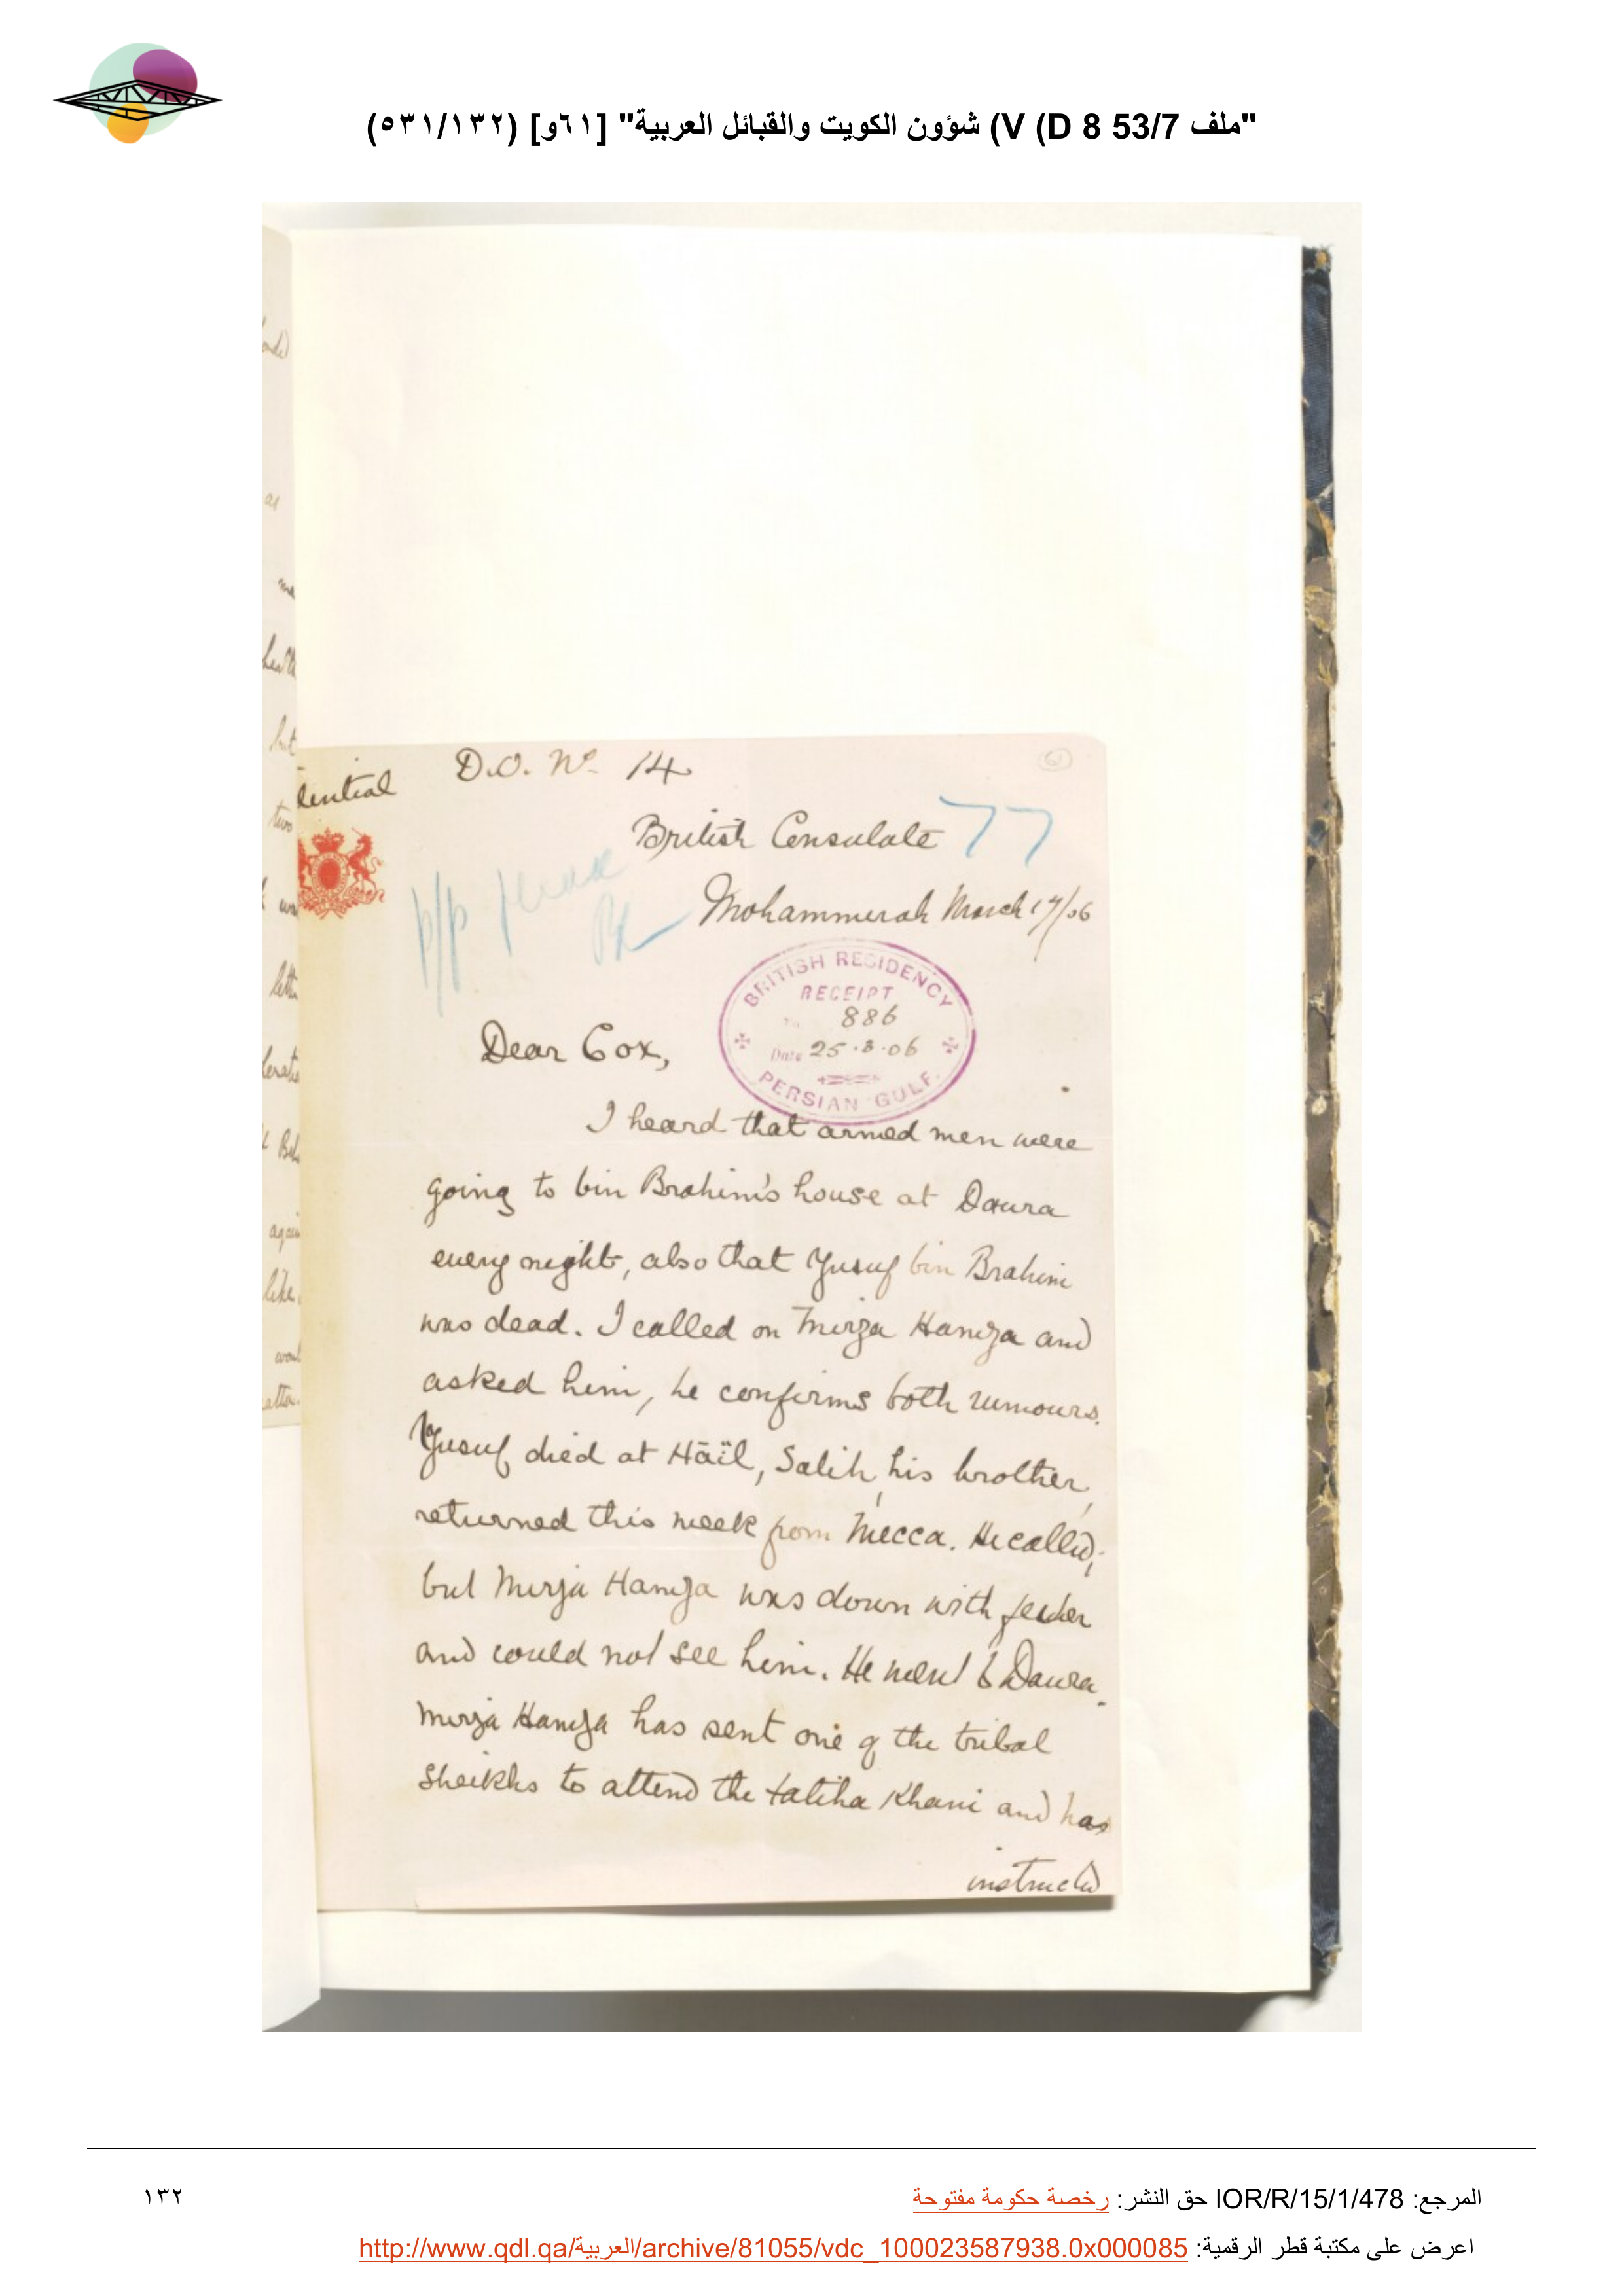 "ملف 53/7 V (D 8) شؤون الكويت والقبائل العربية" [٦١و] (٥٣١/١٣٢)
dential
D.O. No 14
61
British Consulate
77
Mohammerah March 17/06
BRITISH RESIDENCY
RECEIPT
886
Date 25.3.06
PERSIAN GULF.
Dear Cox,
I heard that armed men were
going to bin Brahim's house at Daura
every night, also that Yusuf bin Brahim
was dead. I called on Mirza Hamza and
asked him, he confirms both rumours.
Yusuf died at Hāïl, Salih, his brother,
returned this week from Mecca. He called,
but Mirza Hamza was down with fever
and could not see him. He went to Daura.
Mirza Hamza has sent one of the tribal
Sheikhs to attend the fatiha Khani and has
instructed
المرجع: IOR/R/15/1/478 حق النشر: رخصة حكومة مفتوحة
١٣٢
اعرض على مكتبة قطر الرقمية: http://www.qdl.qa/العربية/archive/81055/vdc_100023587938.0x000085